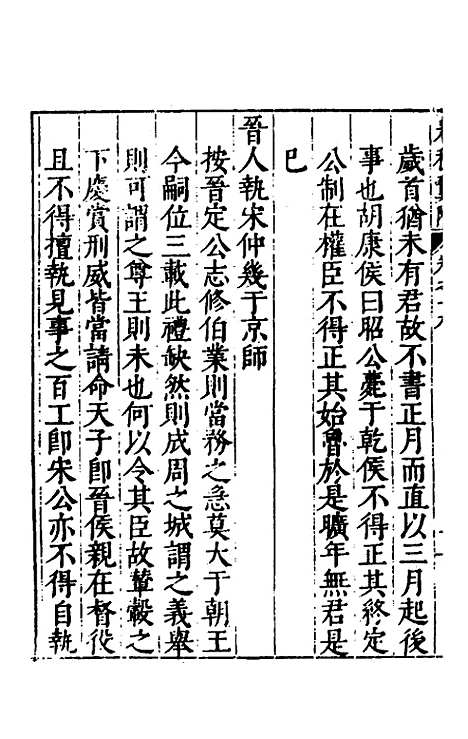 歲首猶未有君故不書正月而直以三月起後
事也胡康侯曰昭公薨于乾侯不得正其終定
公制在權臣不得正其始魯於是曠年無君是
已
晉人執宋仲幾于京師
按晉定公志修伯業則當務之急莫大于朝王
今嗣位三載此禮缺然則成周之城謂之義舉
則可謂之尊王則未也何以令其臣故輦轂之
下慶賞刑威皆當請命天子卽晉侯親在督役
且不得擅執見事之百工卽宋公亦不得自執